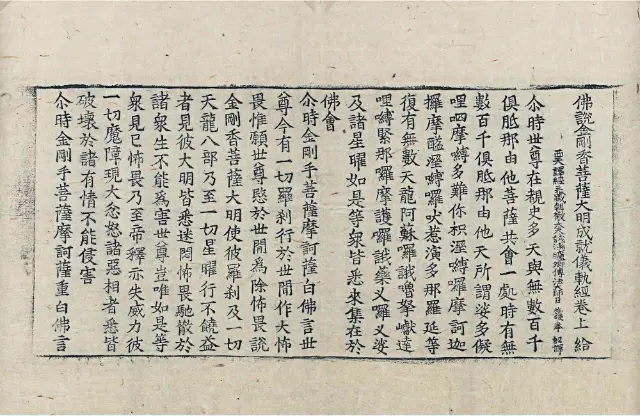 佛說金剛香菩薩大明成就儀軌經卷上 給
西天譯經三藏朝散大夫試鴻臚卿傳法大師臣施護奉 詔譯
尒時世尊在覩史多天與無數百千
俱胝那由他菩薩共會一處時有無
數百千俱胝那由他天所謂娑多儗
哩呬摩嚩多難你枳濕嚩囉摩訶迦
攞摩醯濕嚩囉吠惹演多那羅延等
復有無數天龍阿蘇囉誐嚕拏巘達
哩嚩緊那囉摩護囉誐藥叉囉叉婆
及諸星曜如是等衆皆悉來集在於
佛會
尒時金剛手菩薩摩訶薩白佛言世
尊今有一切羅剎行於世間作大怖
畏惟願世尊愍於世間為除怖畏說
金剛香菩薩大明使彼羅剎及一切
天龍八部乃至一切星曜行不饒益
者見彼大明皆悉迷悶怖畏馳散於
諸衆生不能為害世尊豈唯如是等
衆見已怖畏乃至帝釋亦失威力彼
一切魔障現大忿怒諸惡相者悉皆
破壞於諸有情不能侵害
尒時金剛手菩薩摩訶薩重白佛言